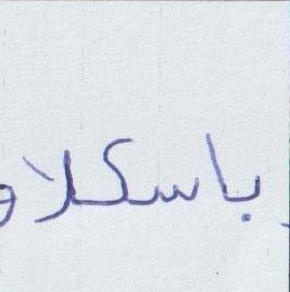 باسكلا